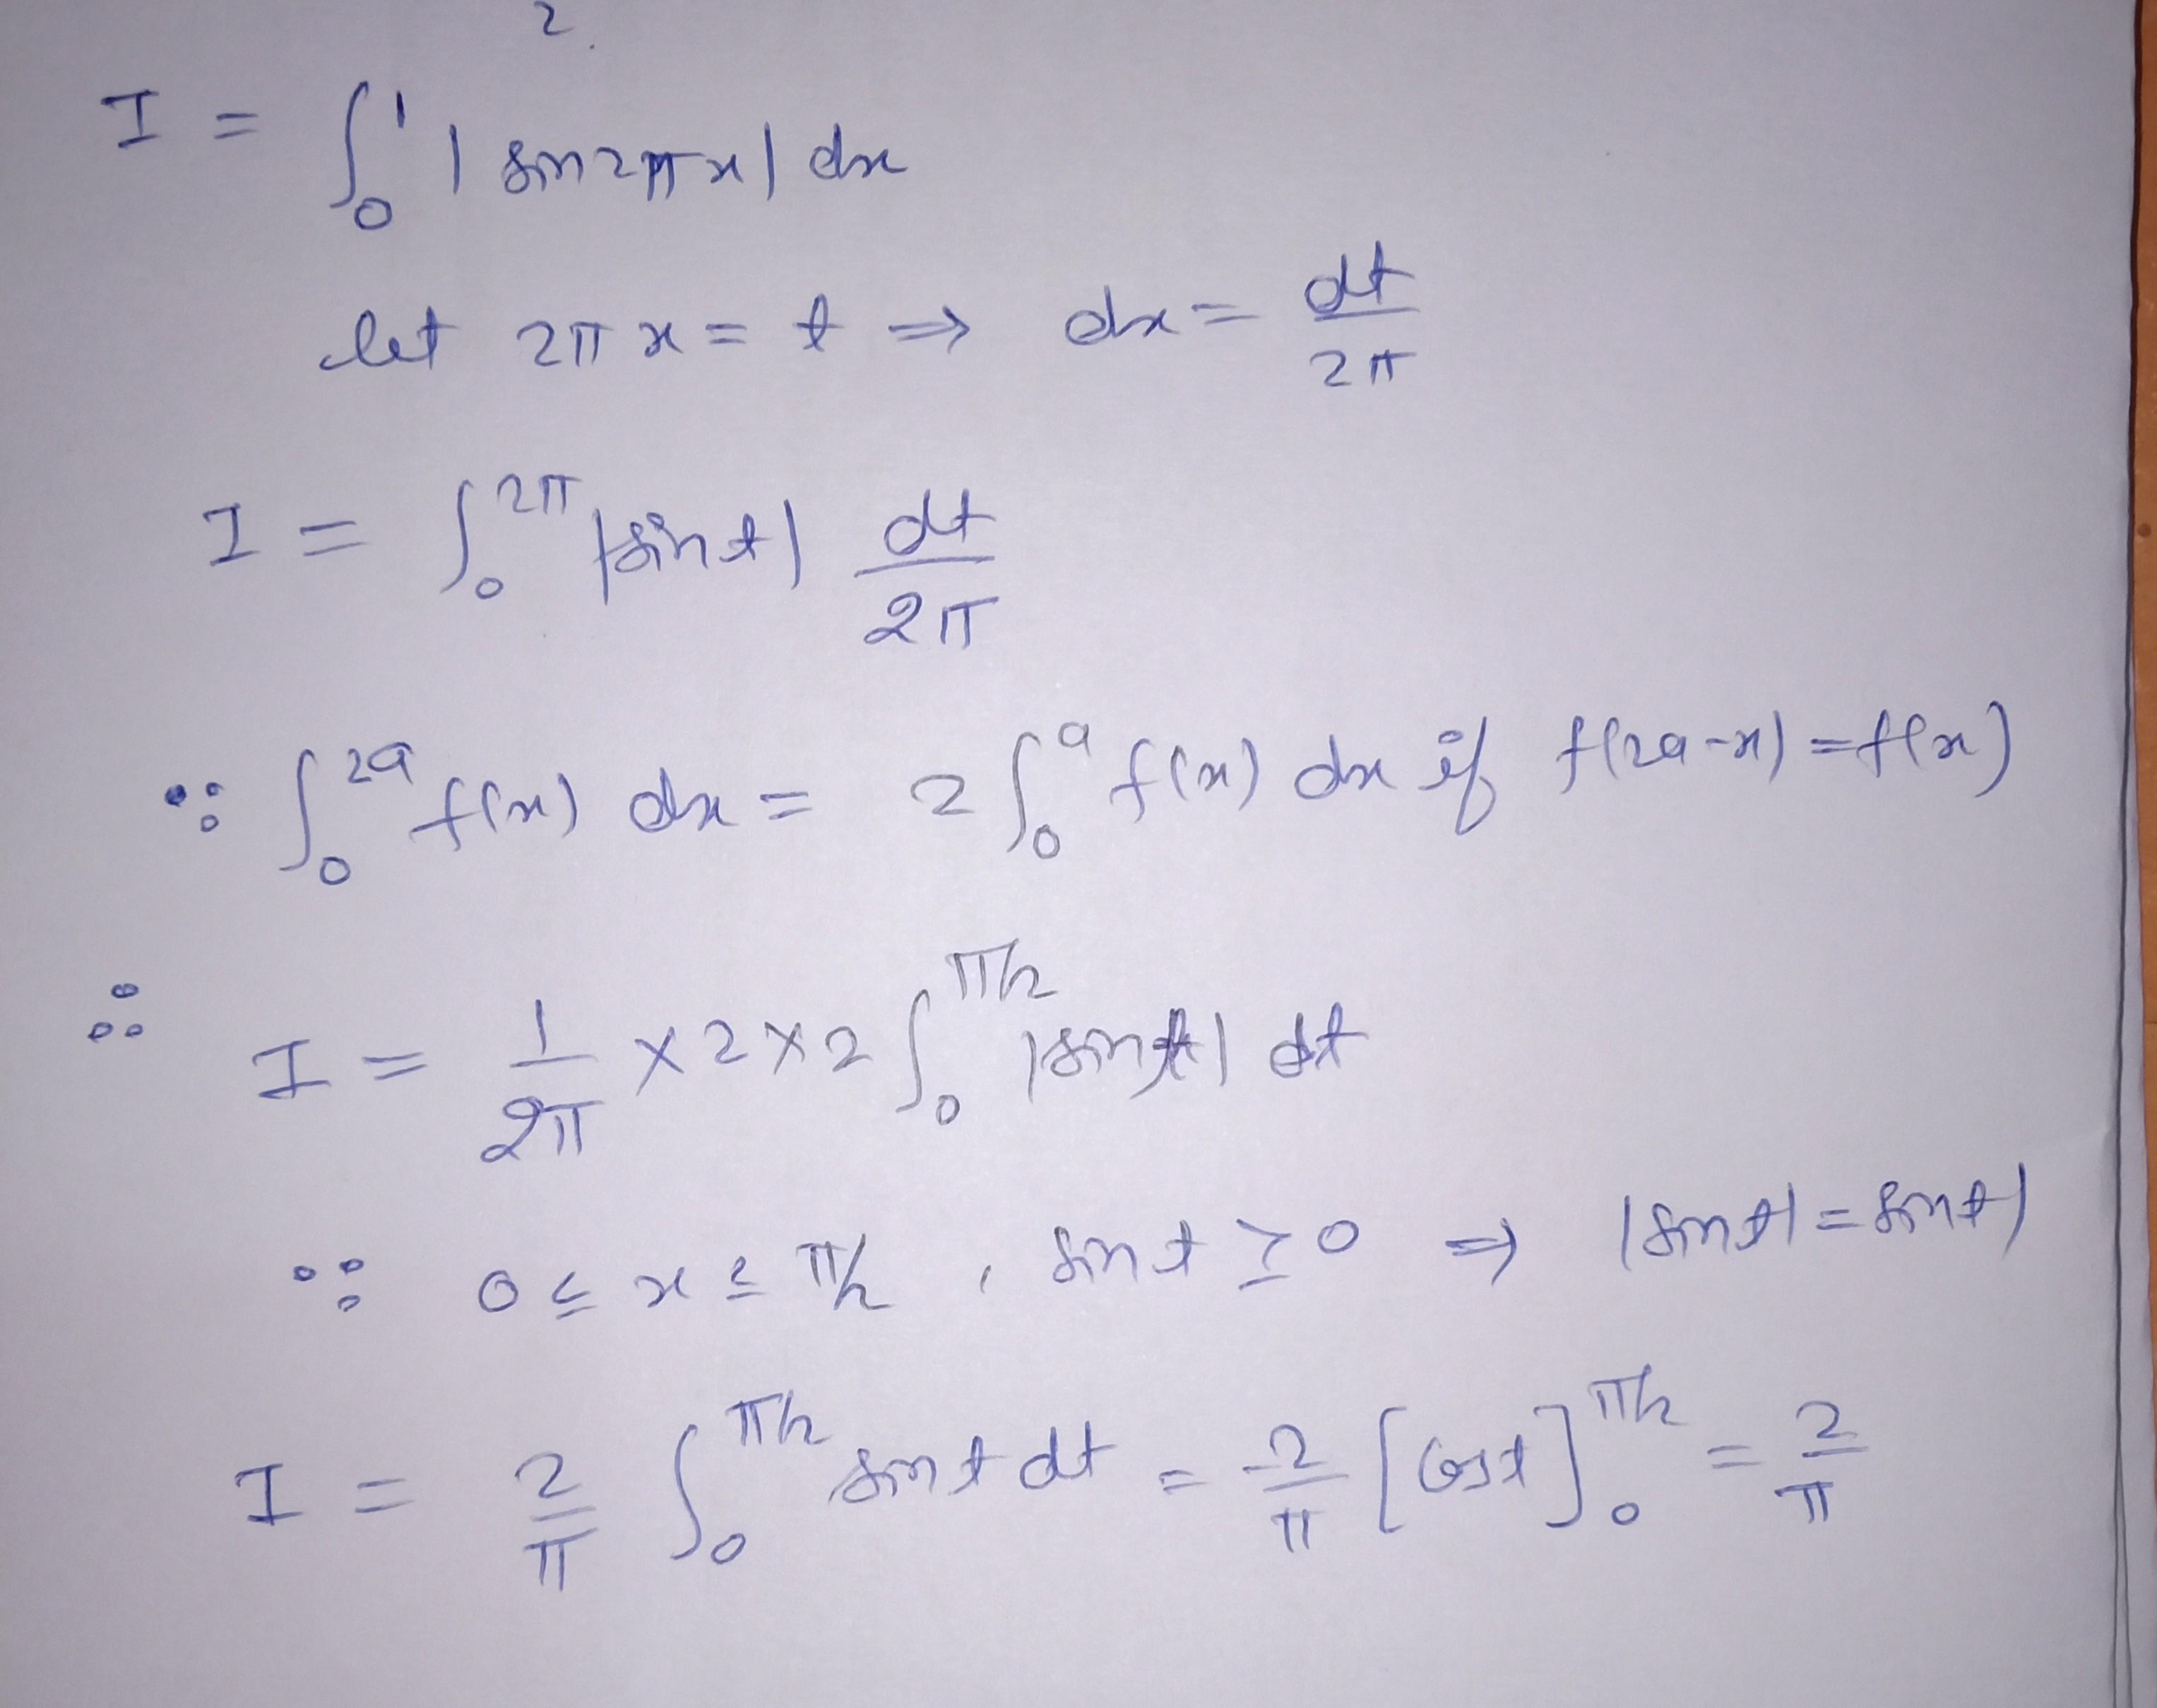 2.
I = ∫₀¹ | sin 2πx | dx
let 2πx = t ⇒ dx = dt/2π
I = ∫₀^2π |sin t| dt/2π
∵ ∫₀^2a f(x) dx = 2 ∫₀^a f(x) dx if f(2a-x) = f(x)
∴ I = 1/2π × 2 × 2 ∫₀^π/2 |sin t| dt
∵ 0 ≤ x ≤ π/2 , sin t ≥ 0 ⇒ |sin t| = sin t)
I = 2/π ∫₀^π/2 sin t dt = -2/π [cos t]₀^π/2 = 2/π